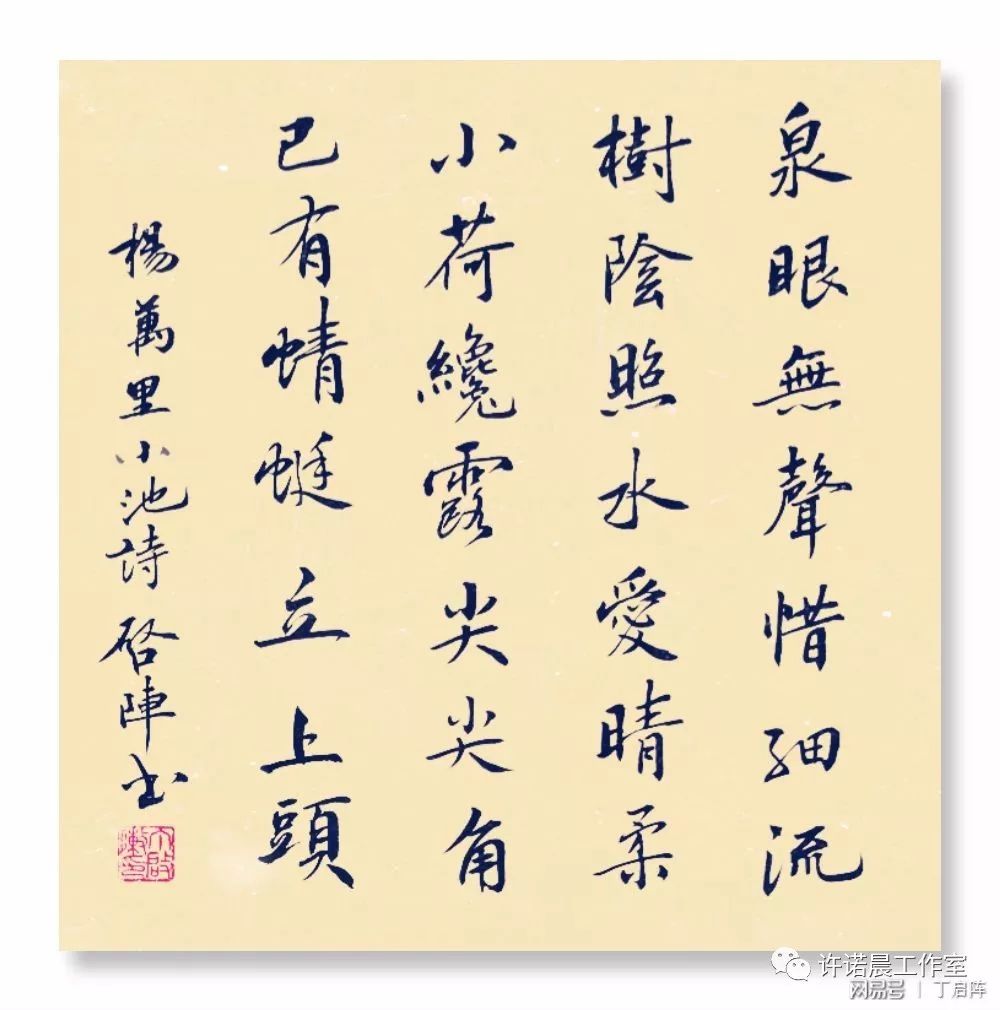 泉眼無聲惜细流
樹陰照水愛晴柔
小荷纔露尖尖角
已有蜻蜓立上頭
楊萬里小池詩 啓陣书
许诺晨工作室
网易号 | 丁启阵